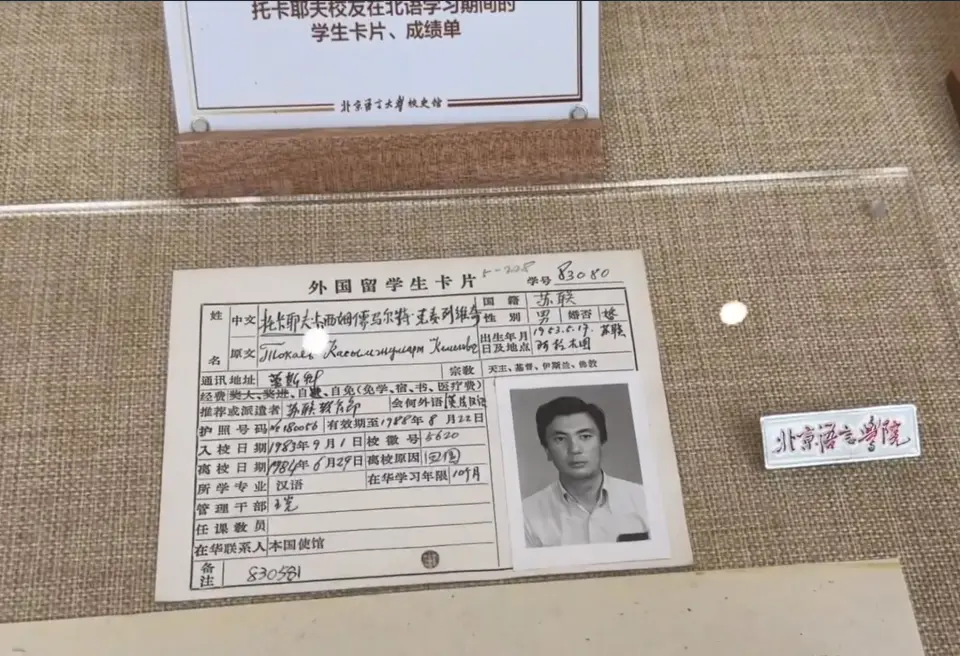 托卡耶夫校友在北语学习期间的
学生卡片、成绩单
北京语言大学校史馆
外国留学生卡片
5-228
学号 83080
姓名 中文 托卡耶夫卡西姆儒马尔特·克麦列维奇 国籍 苏联
性别 男 婚否 婚
原文 Токаев Касымжумарт Кемелевич 出生年月日及地点 1953.5.17. 苏联 阿拉木图
通讯地址 莫斯科 宗教 天主、基督、伊斯兰、佛教
经费 奖人、奖进、自进、自免(免学、宿、书、医疗费)
推荐或派遣者 苏联教育部 会何外语 英法汉语
护照号码 №180056 有效期至1988年8月22日
入校日期 1983年9月1日 校徽号 5620
离校日期 1984年6月29日 离校原因 回国
所学专业 汉语 在华学习年限 10个月
管理干部
任课教员
在华联系人 本国使馆
备注 830581
北京语言学院